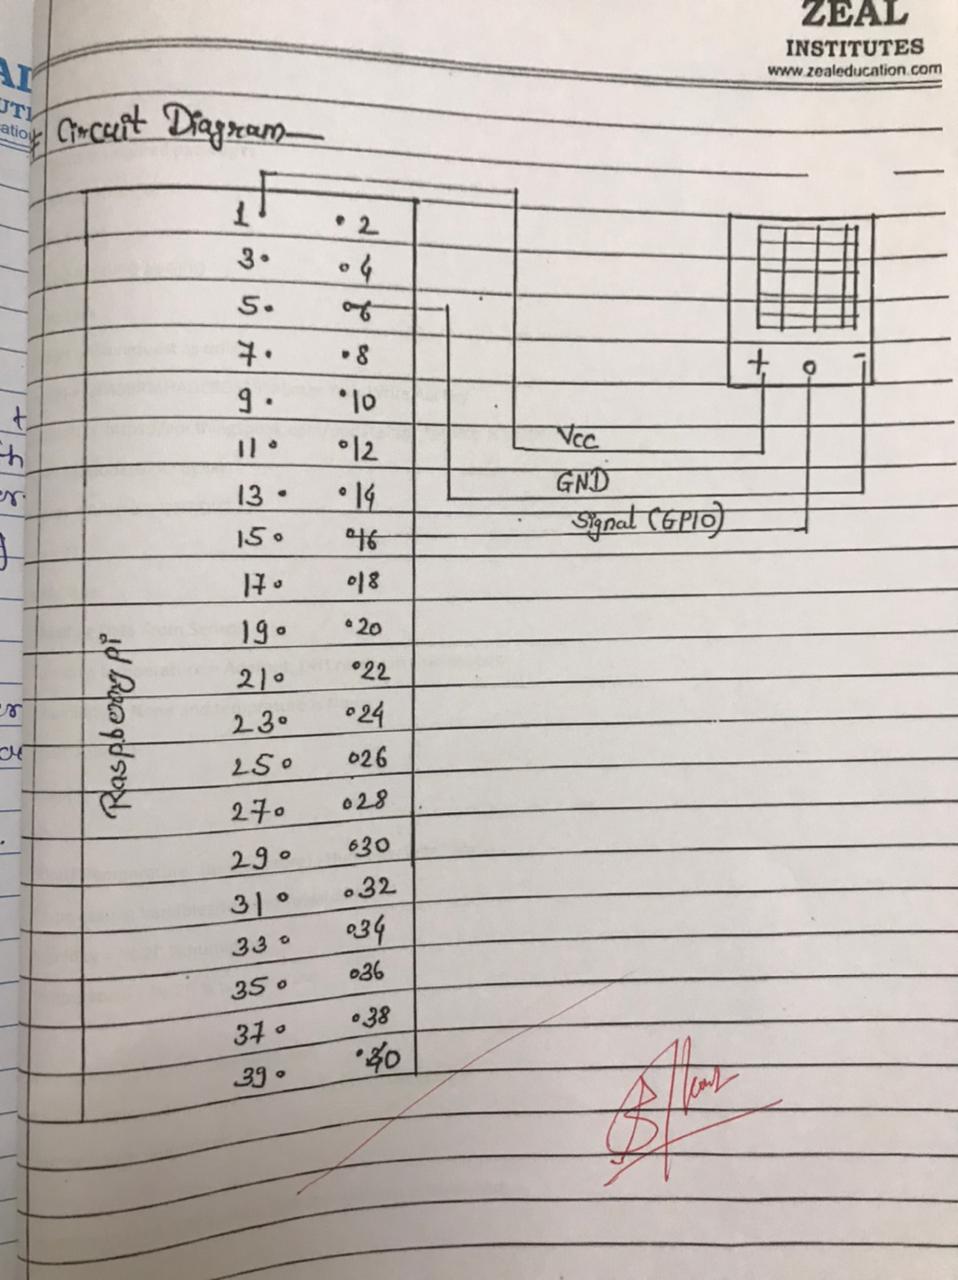 ZEAL
INSTITUTES
www.zealeducation.com
* Circuit Diagram
1 2
3 4
5 6
7 8
9 10
11 12
13 14
15 16
17 18
19 20
21 22
23 24
25 26
27 28
29 30
31 32
33 34
35 36
37 38
39 40
Raspberry pi
+ o -
Vcc
GND
Signal (GPIO)